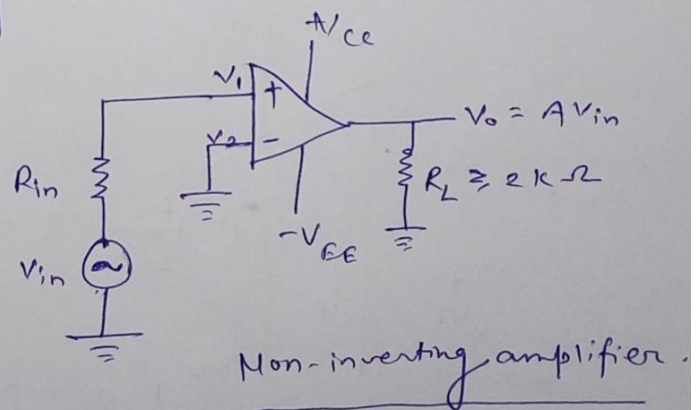 +VCC
V1
+
V2
-
Vo = AVin
Rin
RL ≥ 2KΩ
-VEE
Vin
~
Non-inverting amplifier.